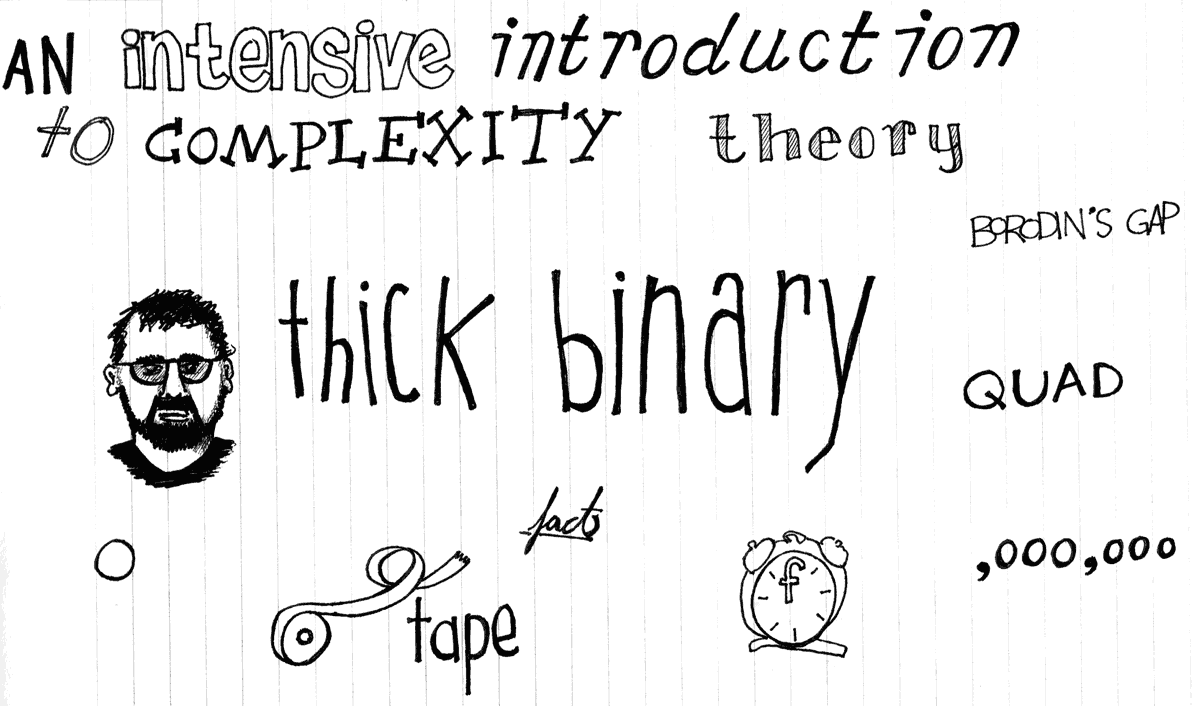 AN intensive introduction
to COMPLEXITY theory
BORODIN'S GAP
thick binary
QUAD
facts
,000,000
f
tape